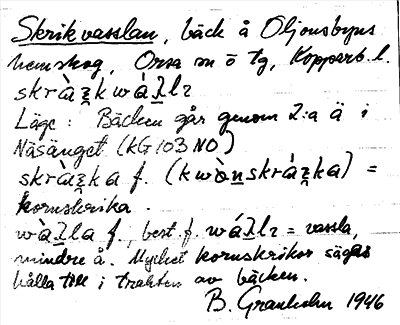 Skrikvasslan, bäck å Oljonsbyns
hemskog, Orsa sn o tg, Kopparb. l.
skrὰʒ̱k wáʟ̱lz
Läge: Bäcken går genom 2:a ä i
Näsänget (KG 103 NO)
f. =
kornskrika.
f., best. f. = vassla,
mindre å. Mycket kornskrikor sägas
hålla till i trakten av bäcken.
B. Granholm 1946